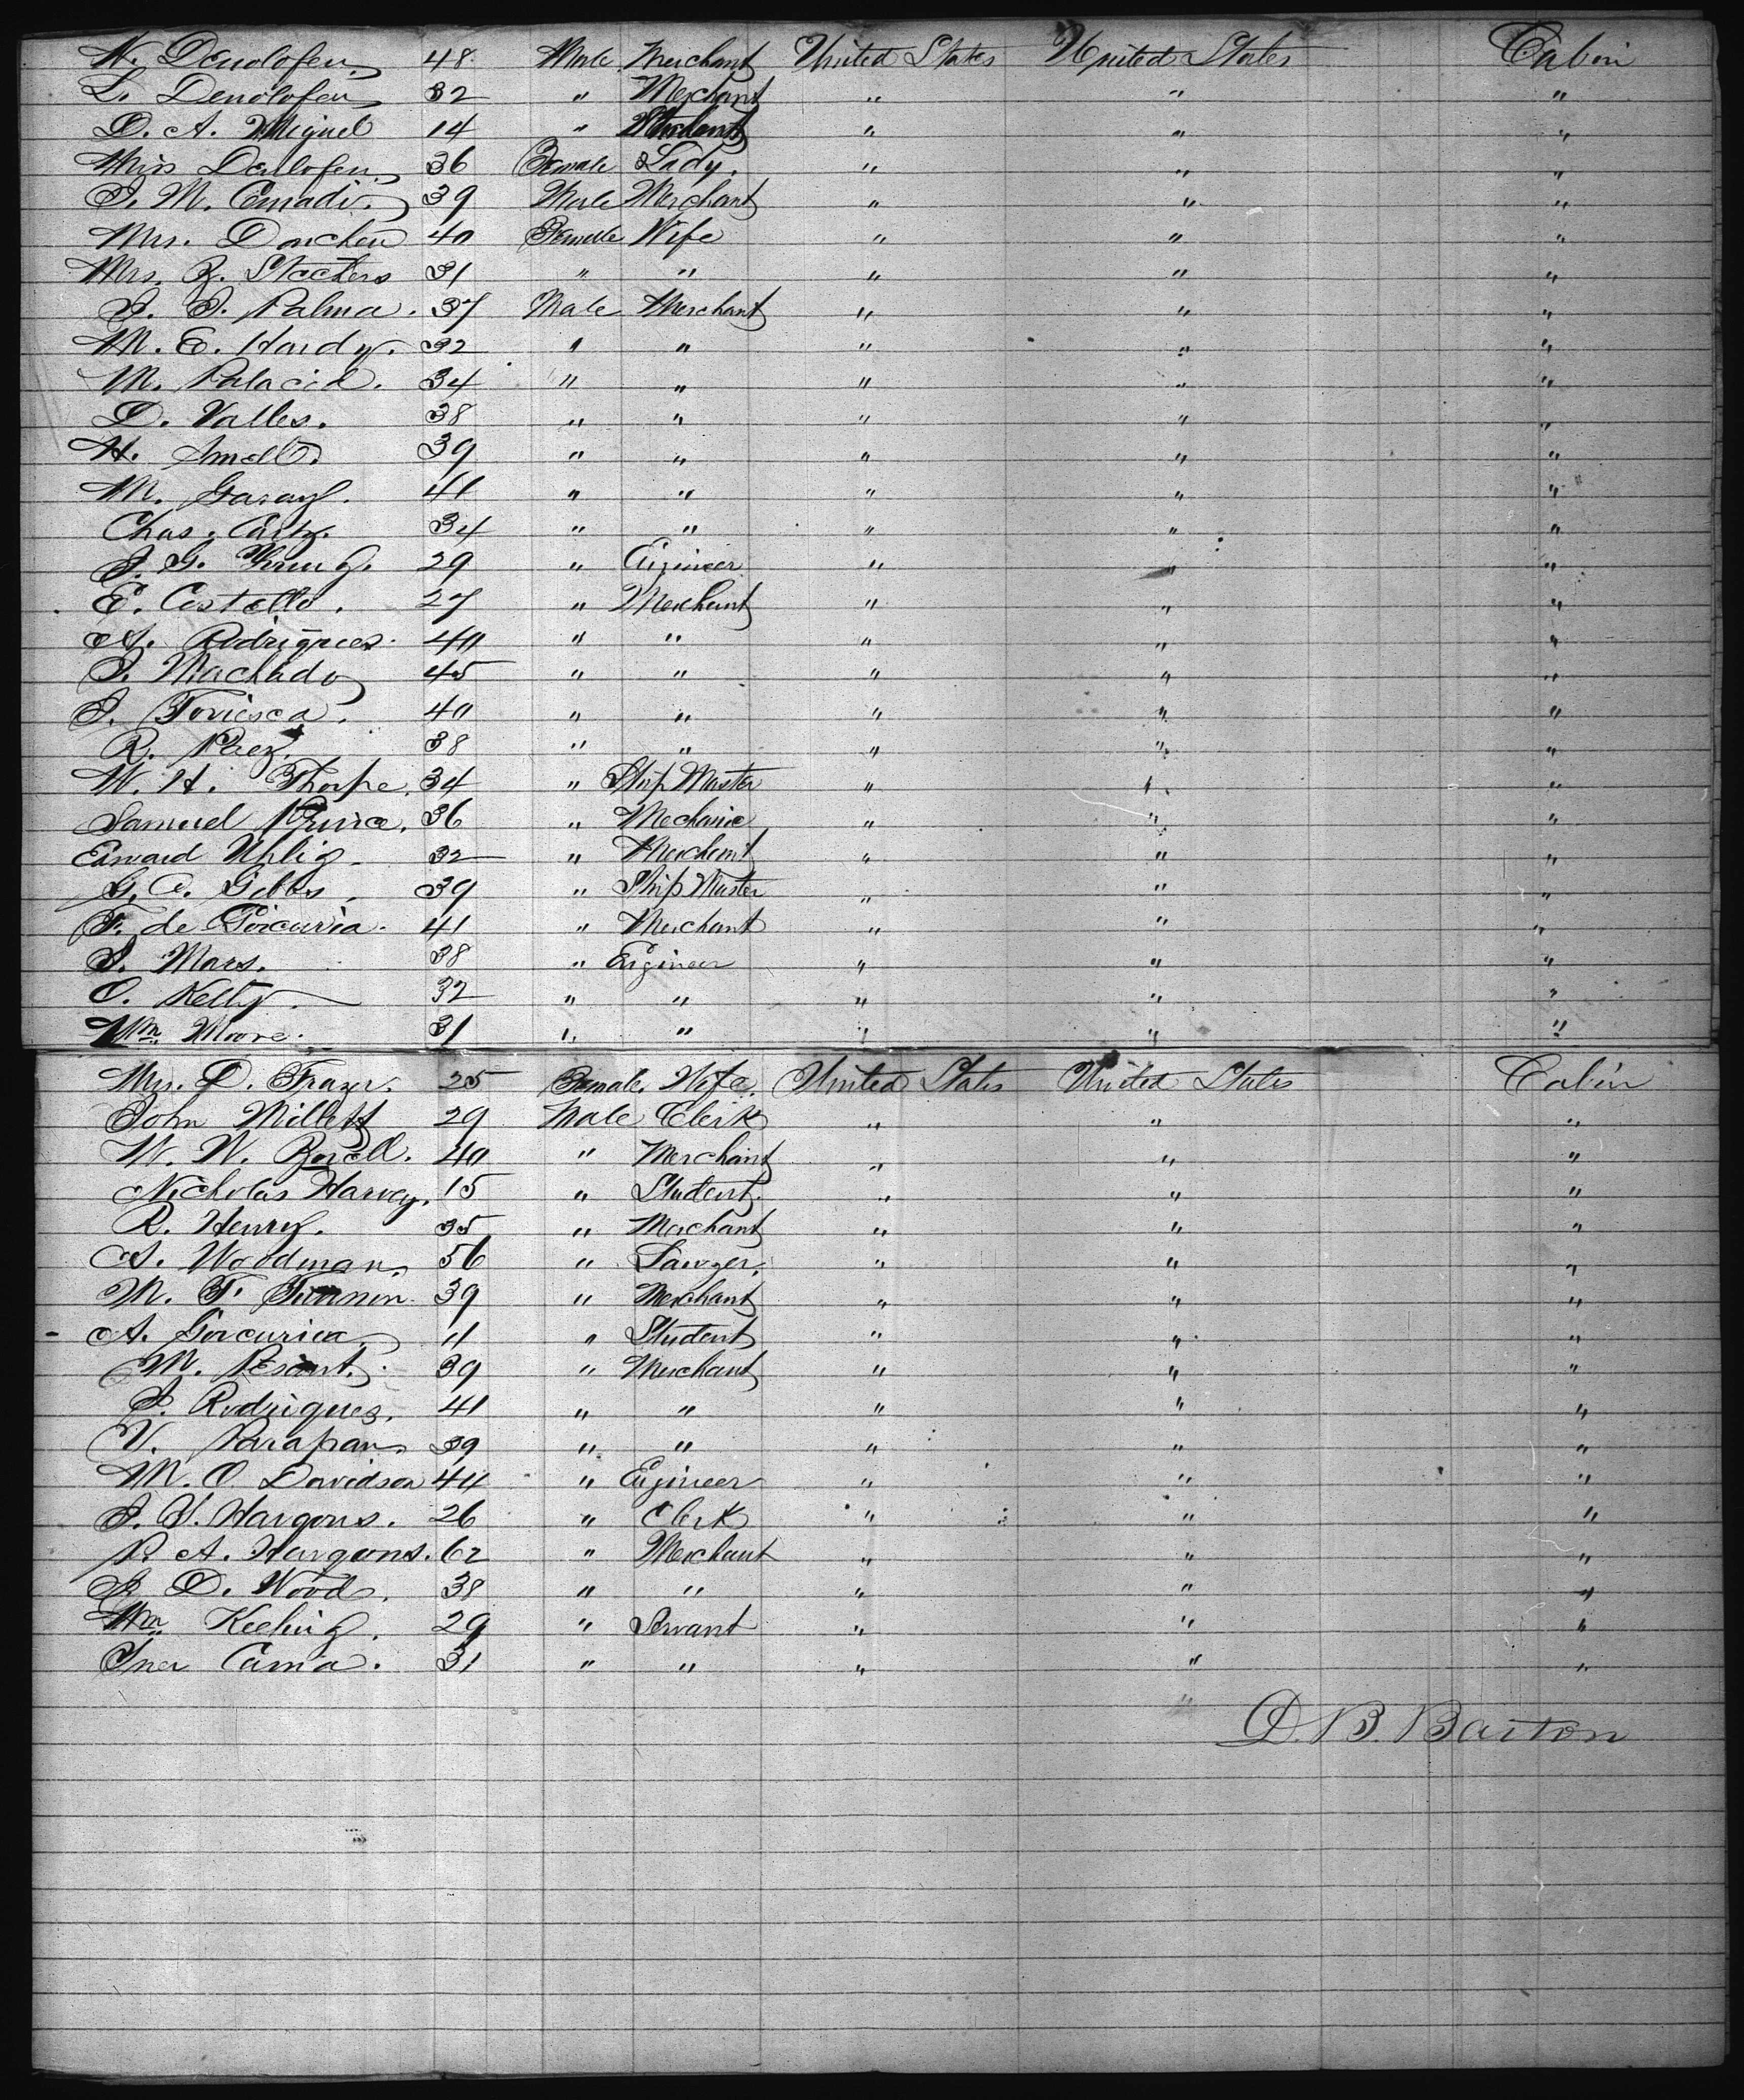 N. Denolofeu 48 Male Merchant United States United States Cabin
L. Denolofeu 32 " Merchant " " "
D. A. Miguel 14 " Student " " "
Miss Denlofeu 36 Female Lady. " " "
J. M. Cmadi. 39 Male Merchant " " "
Mrs. Donchou 40 Female Wife " " "
Mrs. Z. Stacters 31 " " " " "
J. J. Palma. 37 Male Merchant " " "
M. E. Hardy. 32 " " " " "
M. Palacid. 34 " " " " "
D. Valles. 38 " " " " "
H. 39 " " " " "
M. Garay. 41 " " " " "
Chas. 34 " " " " "
J. G. 29 " Engineer " " "
E. Costello. 27 " Merchant " " "
A. Rodrigues. 40 " " " " "
J. Machado 45 " " " " "
J. Toriesca. 40 " " " " "
R. Paez. 38 " " " " "
W. H. Thorpe. 34 " Ship Master " " "
Samuel 36 " Mechanic " " "
Edward Uhlig. 32 " Merchant " " "
G. A. Gibbs. 39 " Ship Master " " "
F. de Goicuria. 41 " Merchant " " "
J. Mars. 38 " Engineer " " "
O. Kelly. 32 " " " " "
Wm. Moore. 31 " " " " "
Mrs. D. Frazer. 25 Female. Wife. United States United States Cabin
John Millett 29 Male Clerk " " "
W. W. 40 " Merchant " " "
Nicholas Harvey. 15 " Student. " " "
R. Henry. 35 " Merchant " " "
A. Woodman. 56 " Lawyer. " " "
M. F. 39 " Merchant " " "
A. Goicuria 11 " Student " " "
M. Pesant. 39 " Merchant " " "
J. Rodrigues. 41 " " " " "
V. Parapan 39 " " " " "
M. O. Davidson 44 " Engineer " " "
J. S. Hargons. 26 " Clerk " " "
P. A. Hargons. 62 " Merchant " " "
S. D. Wood. 38 " " " " "
Wm. Keeling. 29 " Servant " " "
Iner Cama. 31 " " " " "
"
D. B. Barton